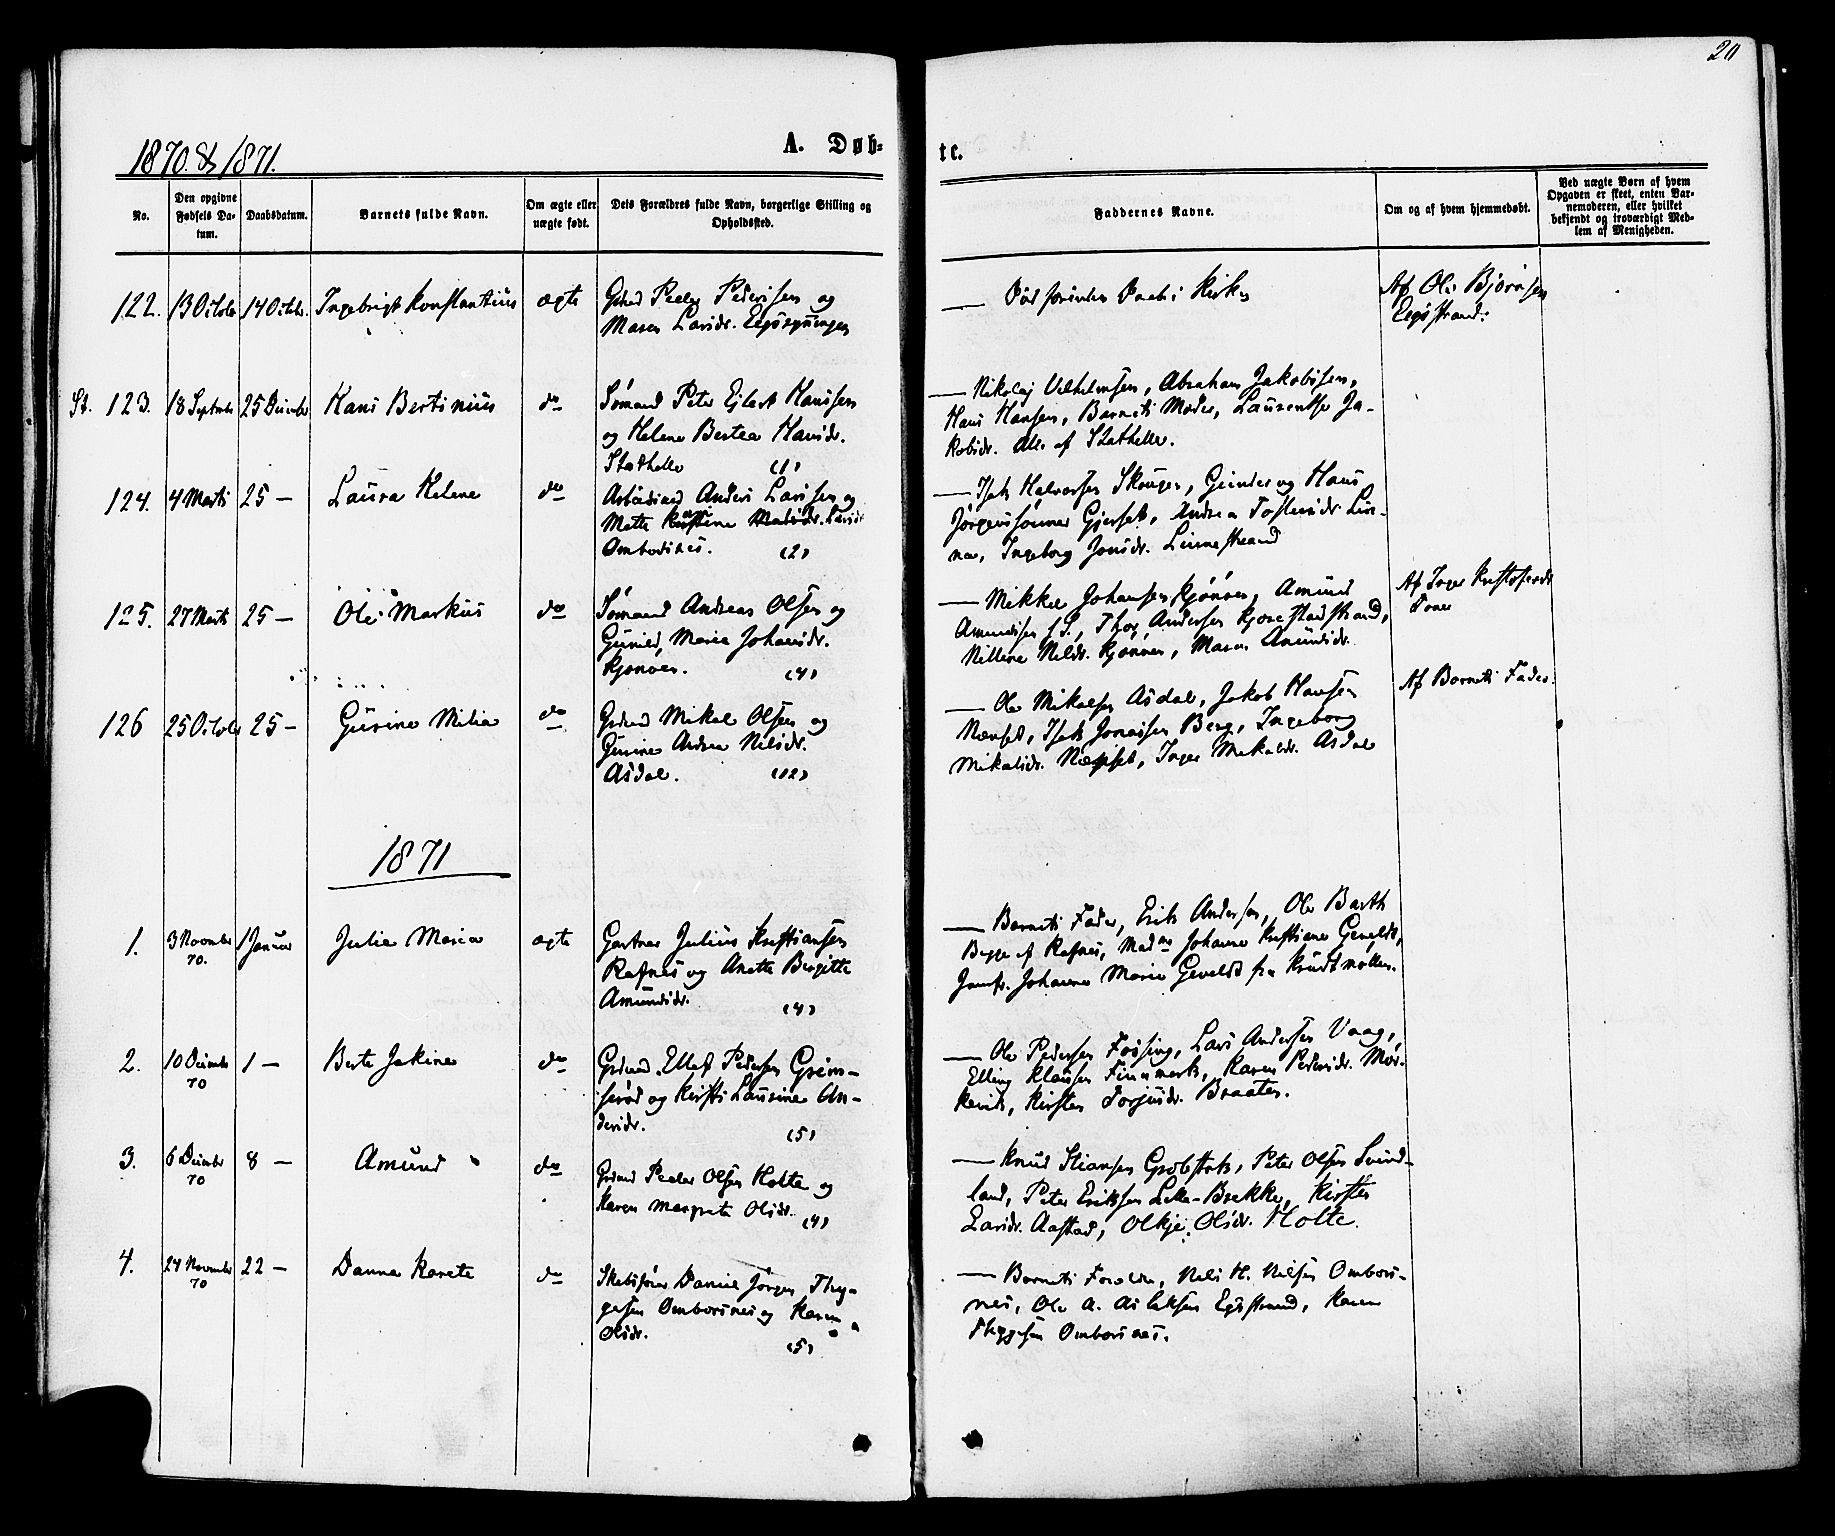 20
1870 & 1871.
A. Døb-
te.
No.
Den opgivne Fødsels Da-tum.
Daabsdatum.
Barnets fulde Navn.
Om ægte eller uægte født.
Dets Forældres fulde Navn, borgerlige Stilling og Opholdssted.
Faddernes Navne.
Om og af hvem hjemmedøbt.
Ved uægte Børn af hvem Opgaven er skeet, enten Bar-nemoderen, eller hvilket bekjendt og troværdigt Med-lem af Menigheden.
122. 13 Octobr 14 Octbr. Ingebrigt Konstantius ægte
Grdmd Peder Pedersen og
Maren Larsdr.
Død forinden Daab i Kirke
Af Ole Bjørnsen
St. 123. 18 Septmbr 25 Decembr Hans Bertinius do
Sømand Peter Ejlert Hansen
og Helene Bertea Hansdr.
Stathelle (1)
— Nikolaj Vilhelmsen, Abraham Jakobsen,
Hans Hansen, Barnets Moder, Laurentse Ja-
kobsdr. Alle af Stathelle.
124. 4 Marts 25 — Laura Helene do
Arbeidsmd Anders Larsen og
Mette Kirstine Larsdr
Ombordsnes. (2)
— Isak Halvorsen Skougen, Gunder og Hans
Jørgenssønner Gjerset, Andrea Tostensdr. Lin-
nes, Ingeborg Jonsdr. Linnestrand
125. 27 Marts 25 — Ole Markus do
Sømand Andreas Olsen og
Gunild Maria Johansdr.
Kjønnes. (4)
— Mikkel Johansen Kjønnes, Amund
Amundsen f S., Thor Andersen Kjørestadstrand,
Nilline Nilsdr. Kjønnes, Maren Amundsdr.
Af Inger Kristofersdr
Tone
126 25 Octobr 25 — Gurine Milia do
Grdmd Mikal Olsen og
Gurine Andrea Nilsdr.
Asdal. (12)
— Ole Mikalsen Asdal, Jakob Hansen
Nænset, Isak Jonassen Berg, Ingeborg
Mikalsdr. Nænset, Inger Mikalsdr. Asdal
Af Barnets Fader.
1871
1. 3 Novembr 70. 1 Januar Julie Maria ægte
Gartner Julius Kristiansen
Rafnes og Anette Birgitte
Amundsdr. (4)
— Barnets Fader, Erik Andersen, Ole Barth
Begge af Rafnes, Madme Johanne Kristiane Geveldt,
Jomfr. Johanne Marie Geveldt fra Krudtmøllen.
2. 10 Decembr 70 1 — Berte Jakine do
Grdmd Ellef Pedersen Grøm-
serød og Kirsti Laurine An-
dersdr. (5)
— Ole Pedersen Fossing, Lars Andersen Vaag,
Elling Klausen Finmark, Karen Pedersdr. Mør-
kevik, Kirsten Torjusdr. Braaten.
3. 6 Decembr 70 8 — Amund do
Grdmd Peder Olsen Holte og
Karen Margrete Olsdr. (4)
— Knud Stiansen Grobstok, Peter Olsen Svind-
land, Peter Eriksen Lille-Brekke, Kirsten
Larsdr. Aastad, Olkje Olsdr. Holte.
4. 24 Novembr 70 22 — Danna Karete do
Skibsfører Daniel Jørgen Thy-
gesen Ombordsnes og Karen
Olsdr. (5)
— Barnets Forældre, Nils H. Nilsen Ombors-
nes, Ole A. Aslaksen Egsstrand, Karen
Thygesen Omborsnes.